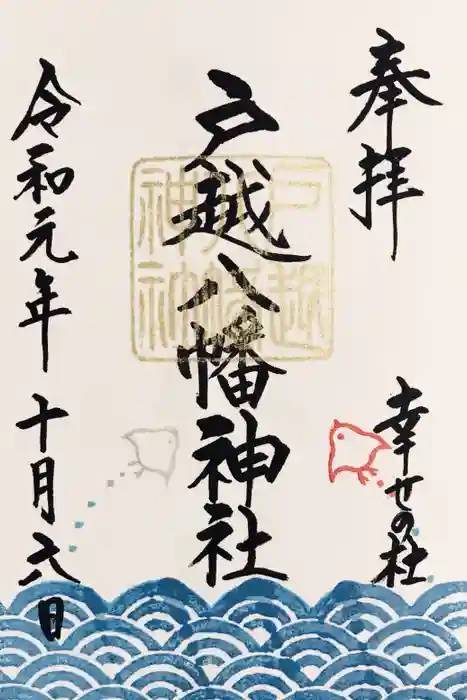 奉拝
幸せの杜
戸越八幡神社
戸越八幡神社
令和元年十月六日